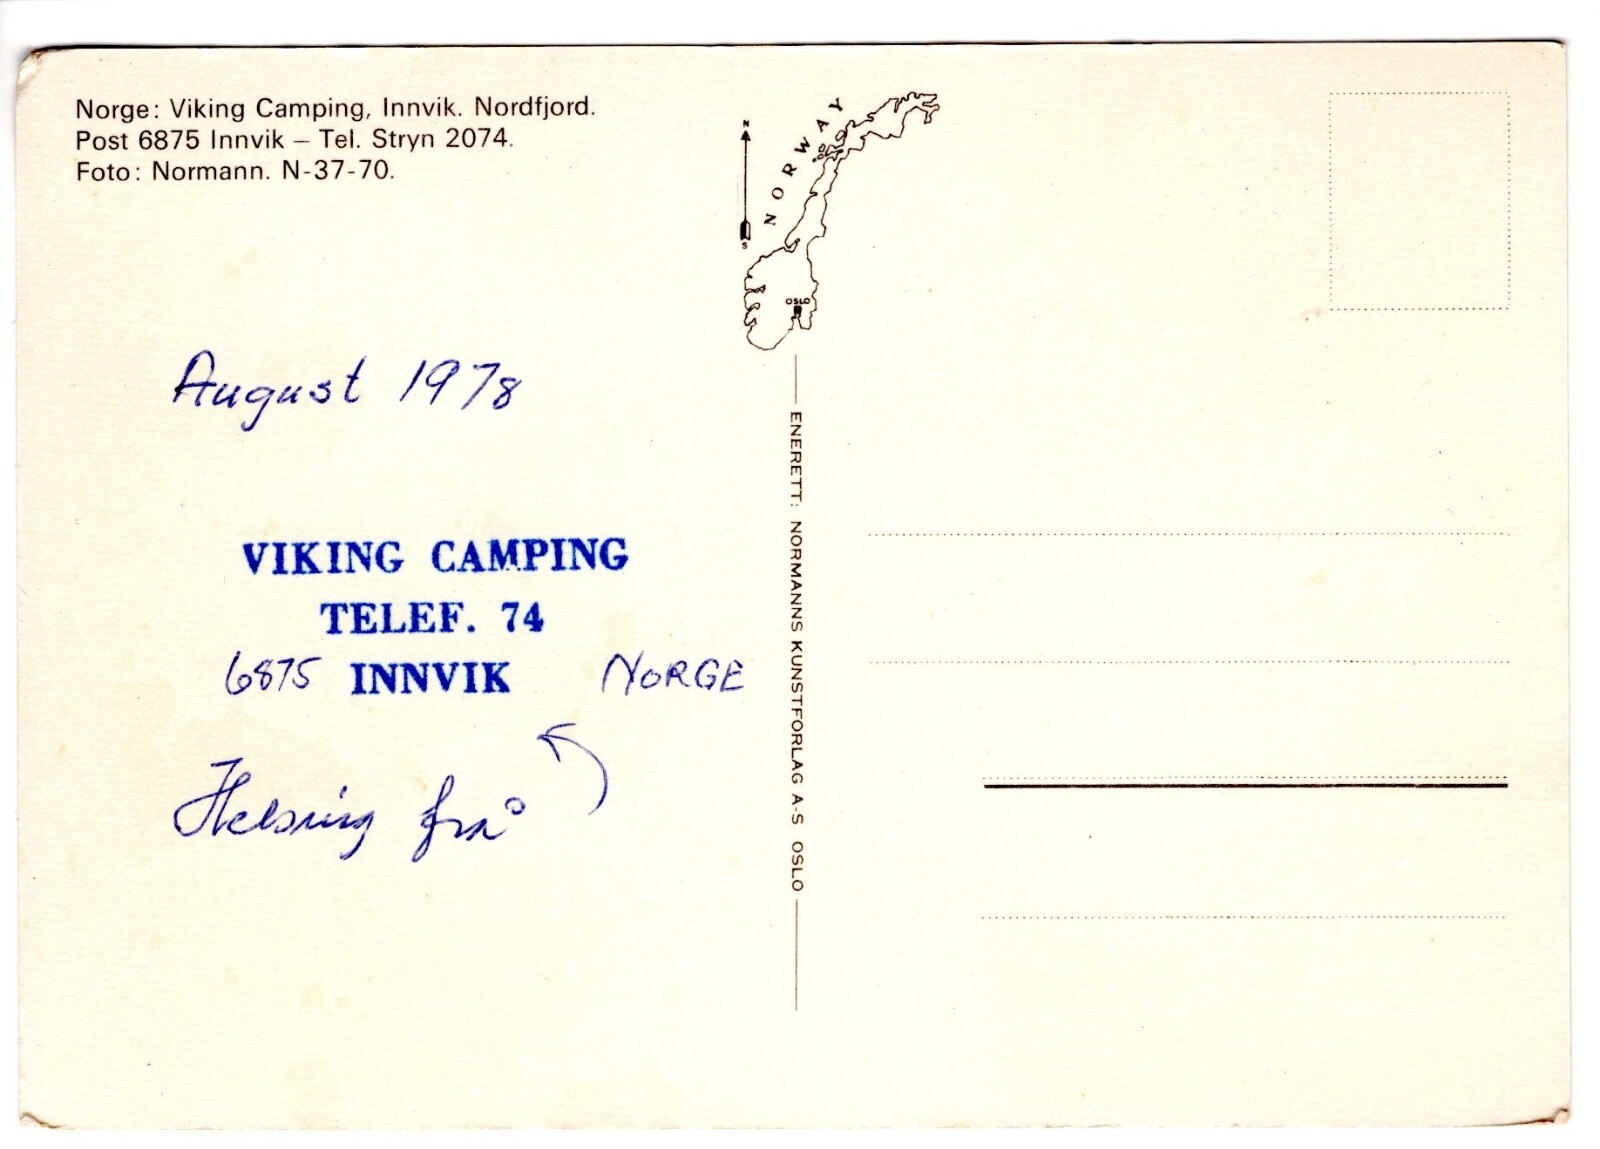 Norge: Viking Camping, Innvik. Nordfjord.
Post 6875 Innvik – Tel. Stryn 2074.
Foto: Normann. N-37-70.
N
S
NORWAY
OSLO
August 1978
VIKING CAMPING
TELEF. 74
6875 INNVIK NORGE
Helsing frå
ENERETT: NORMANNS KUNSTFORLAG A-S OSLO